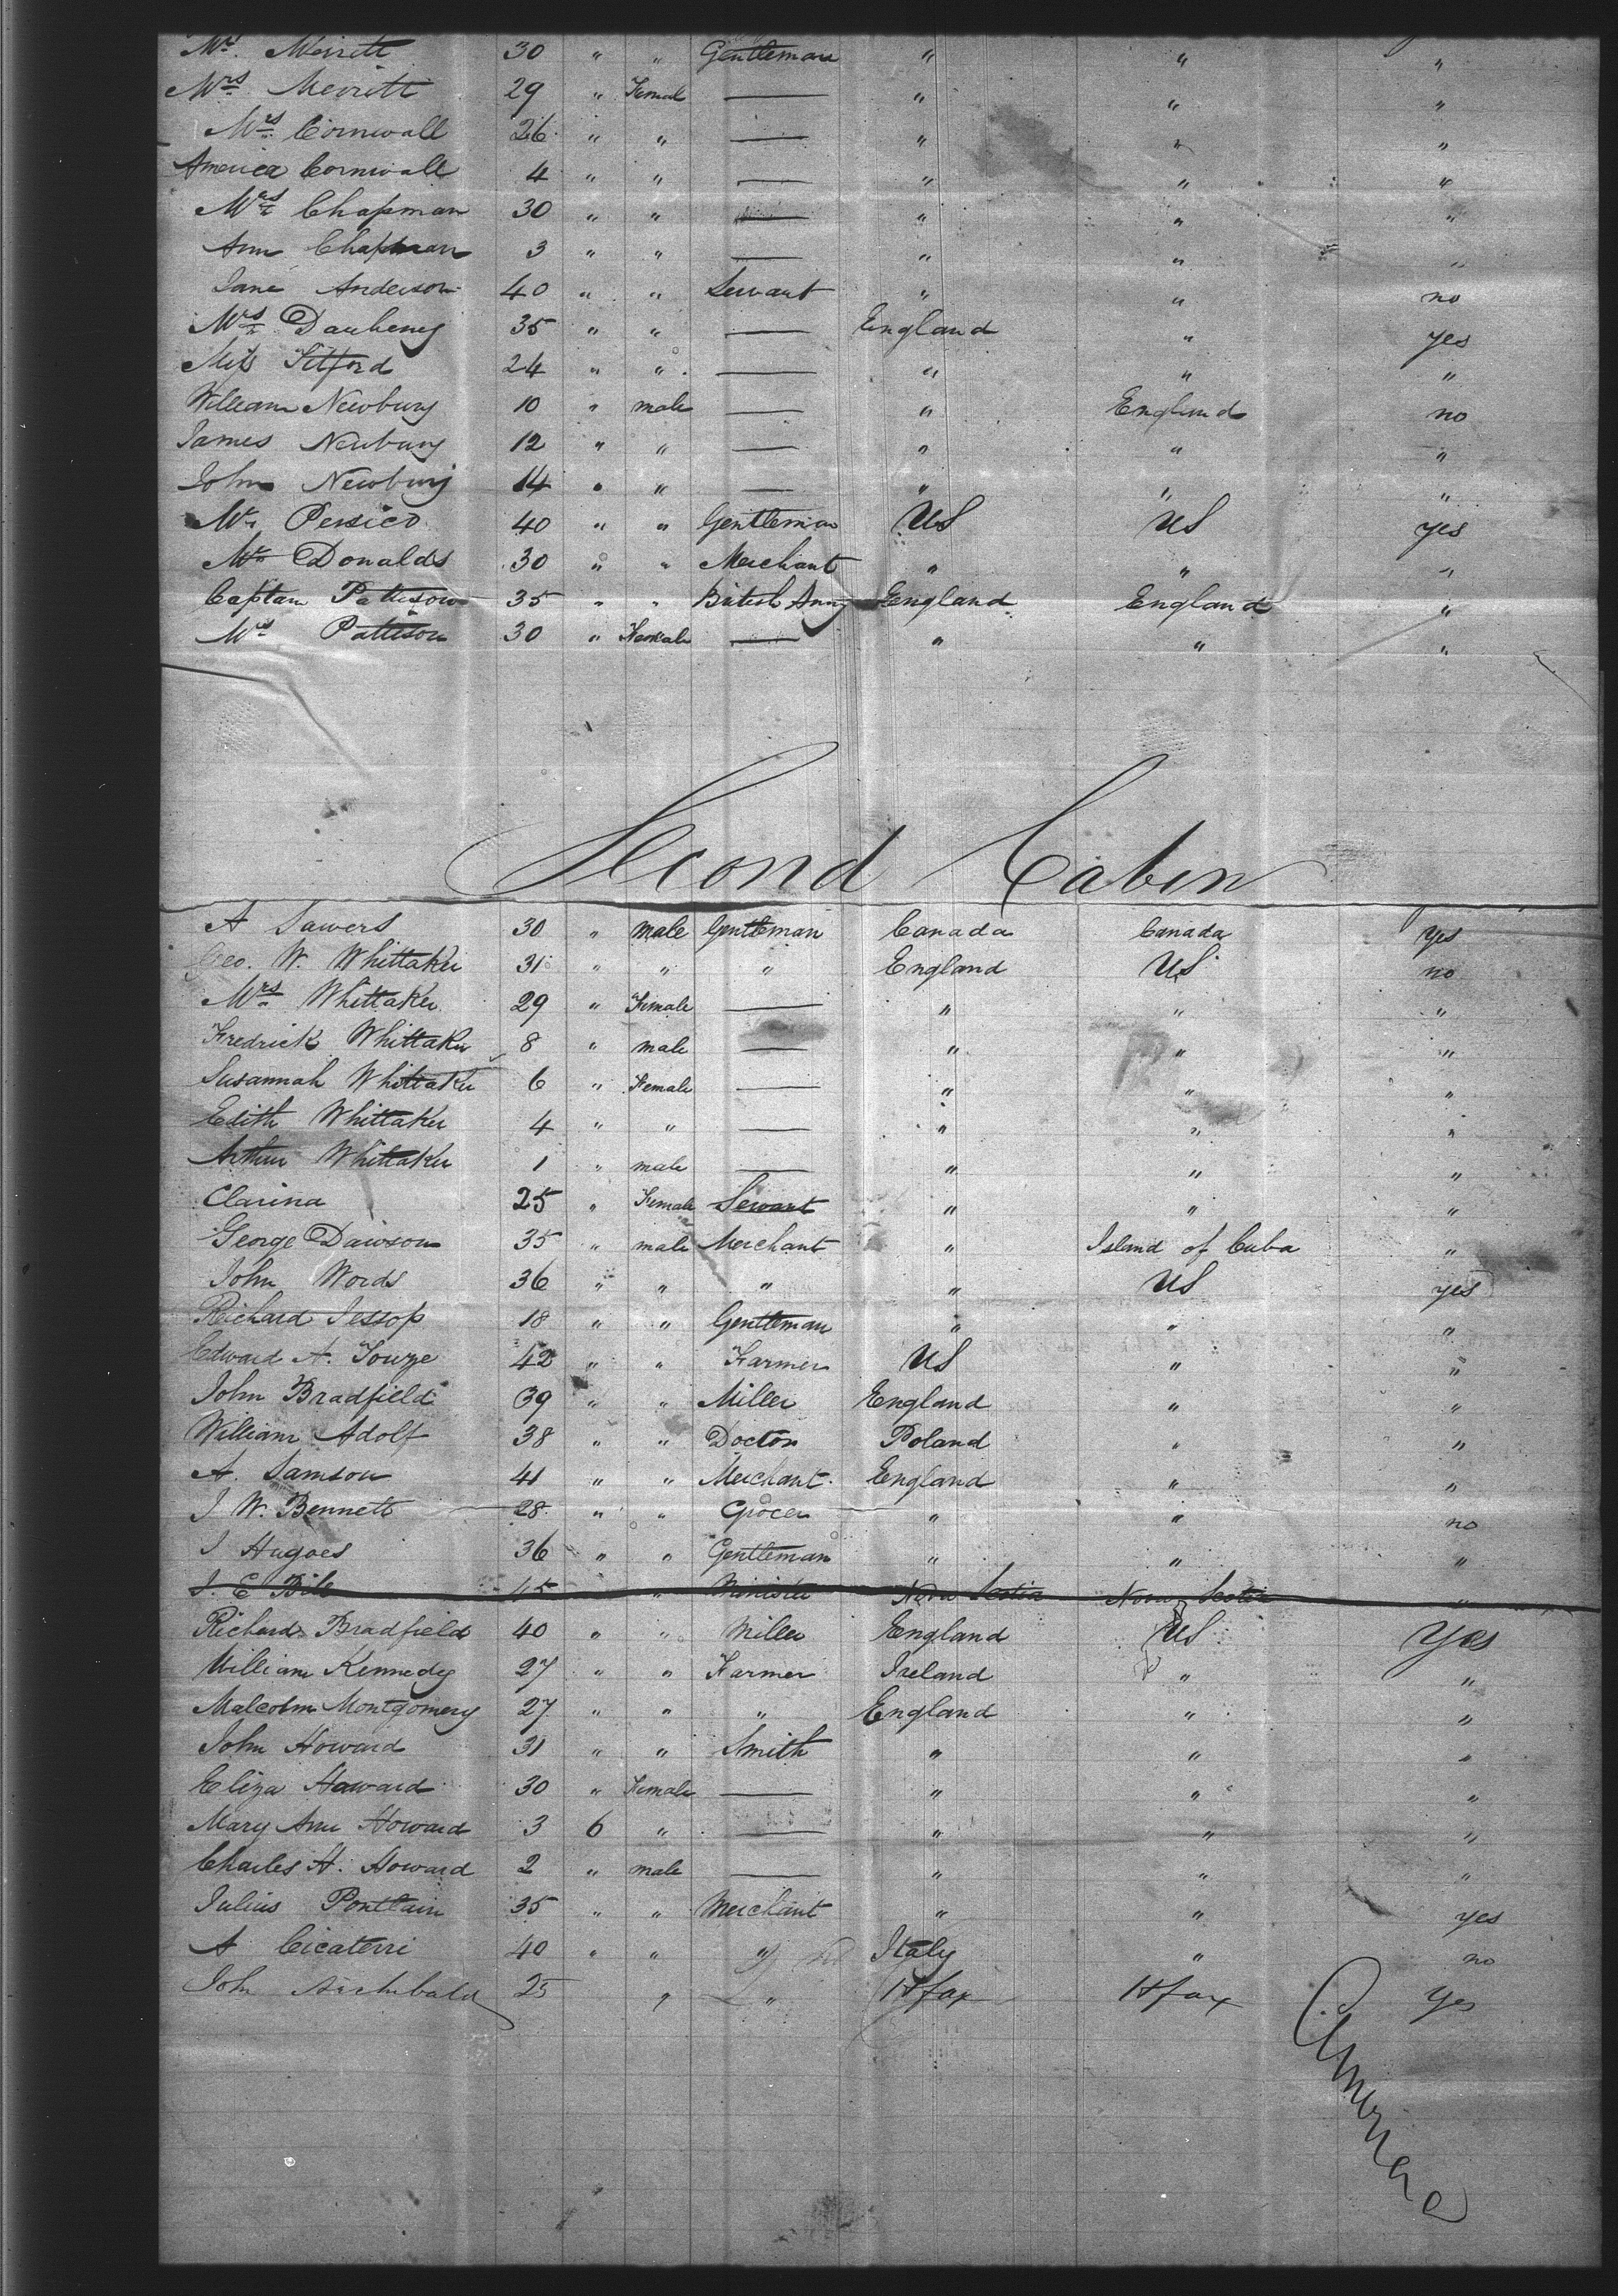 Mr. Merritt 30 " " Gentleman " " "
Mrs Merritt 29 " Femal — " " "
Mrs Cornwall 26 " " — " " "
America Cornwall 4 " " — " " "
Mrs Chapman 30 " " — " " "
Ann Chapman 3 " " — " " "
Jane Anderson 40 " " Servant " " no
Mrs Daubeny 35 " " — England " yes
Miss Titford 24 " " — " " "
William Newbury 10 " male — " England no
James Newbury 12 " " — " " "
John Newbury 14 " " — " " "
Mr Persico 40 " " Gentleman US US yes
Mr Donalds 30 " " Merchant " " "
Captan Pattison 35 " " British Army England England "
Mrs Pattison 30 " Female — " " "
Second Cabin
A Sawers 30 " male Gentleman Canada Canada Yes
Geo. W. Whittaker 31 " " " England US no
Mrs Whittaker 29 " Female — " " "
Fredrick Whittaker 8 " male — " " "
Susannah Whittaker 6 " Female — " " "
Edith Whittaker 4 " " — " " "
Arthur Whittaker 1 " male — " " "
Clarina 25 " Female Servant " " "
George Dawson 35 " male Merchant " Island of Cuba "
John Words 36 " " " " US yes
Richard Jessop 18 " " Gentleman " " "
Edward A. Towze 42 " " Farmer US " "
John Bradfield 39 " " Miller England " "
William Adolf 38 " " Doctor Poland " "
A. Samson 41 " " Merchant England " "
J W. Bennett 28 " " Grocer " " no
J Hugoes 36 " " Gentleman " " "
J. E Bile 45 " Minister Nova Scotia Nova Scotia "
Richard Bradfield 40 " " Miller England US Yes
William Kennedy 27 " " Farmer Ireland " "
Malcolm Montgomery 27 " " " England " "
John Howard 31 " " Smith " " "
Eliza Howard 30 " Female — " " "
Mary Ann Howard 3 6 " — " " "
Charles H. Howard 2 " male — " " "
Julius Pontlain 35 " " Merchant " " yes
A Cicaterri 40 " " " Italy " no
John Archibald 25 " " Hfax Hfax Yes